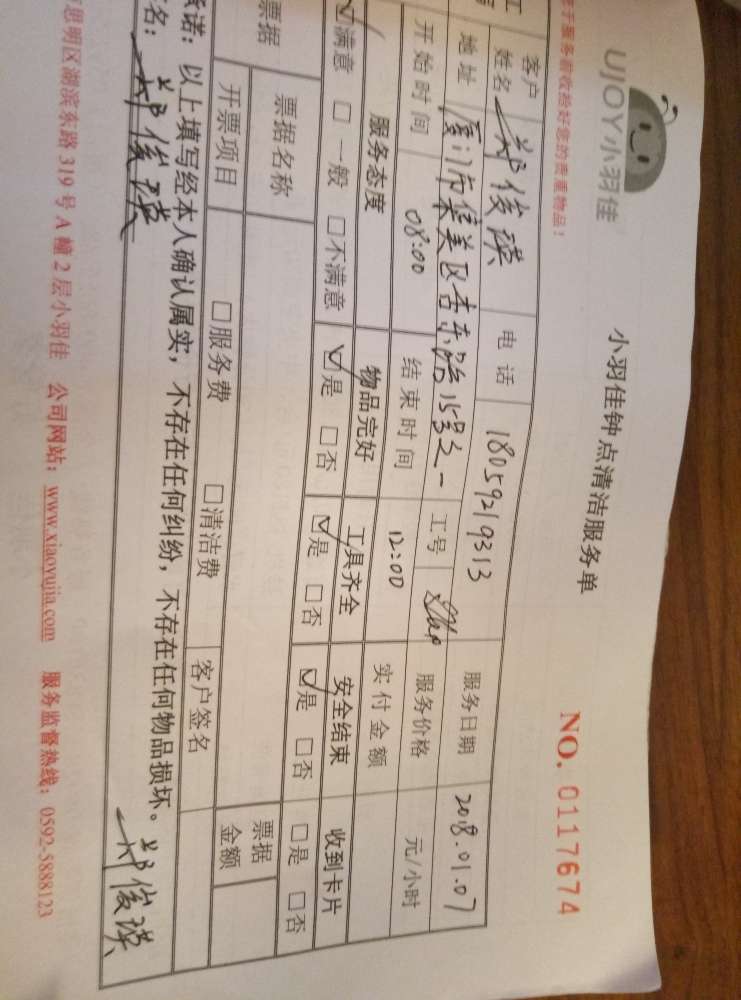 UJOY小羽佳
小羽佳钟点清洁服务单
NO. 0117674
于服务前收捡好您的贵重物品!
客户姓名 郑俊瑛 电话 18059219313 服务日期 2018.01.07
地址 厦门市集美区杏东路15号之一 工号 服务价格 元/小时
开始时间 08:00 结束时间 12:00 实付金额
服务态度 物品完好 工具齐全 安全结束 收到卡片
☑满意 □一般 □不满意 ☑是 □否 ☑是 □否 ☑是 □否 □是 □否
票据 票据名称 票据金额
开票项目 □服务费 □清洁费 客户签名
承诺:以上填写经本人确认属实,不存在任何纠纷,不存在任何物品损坏。郑俊瑛
名:郑俊瑛
思明区湖滨东路319号A幢2层小羽佳 公司网站:www.xiaoyujia.com 服务监督热线:0592-5888123